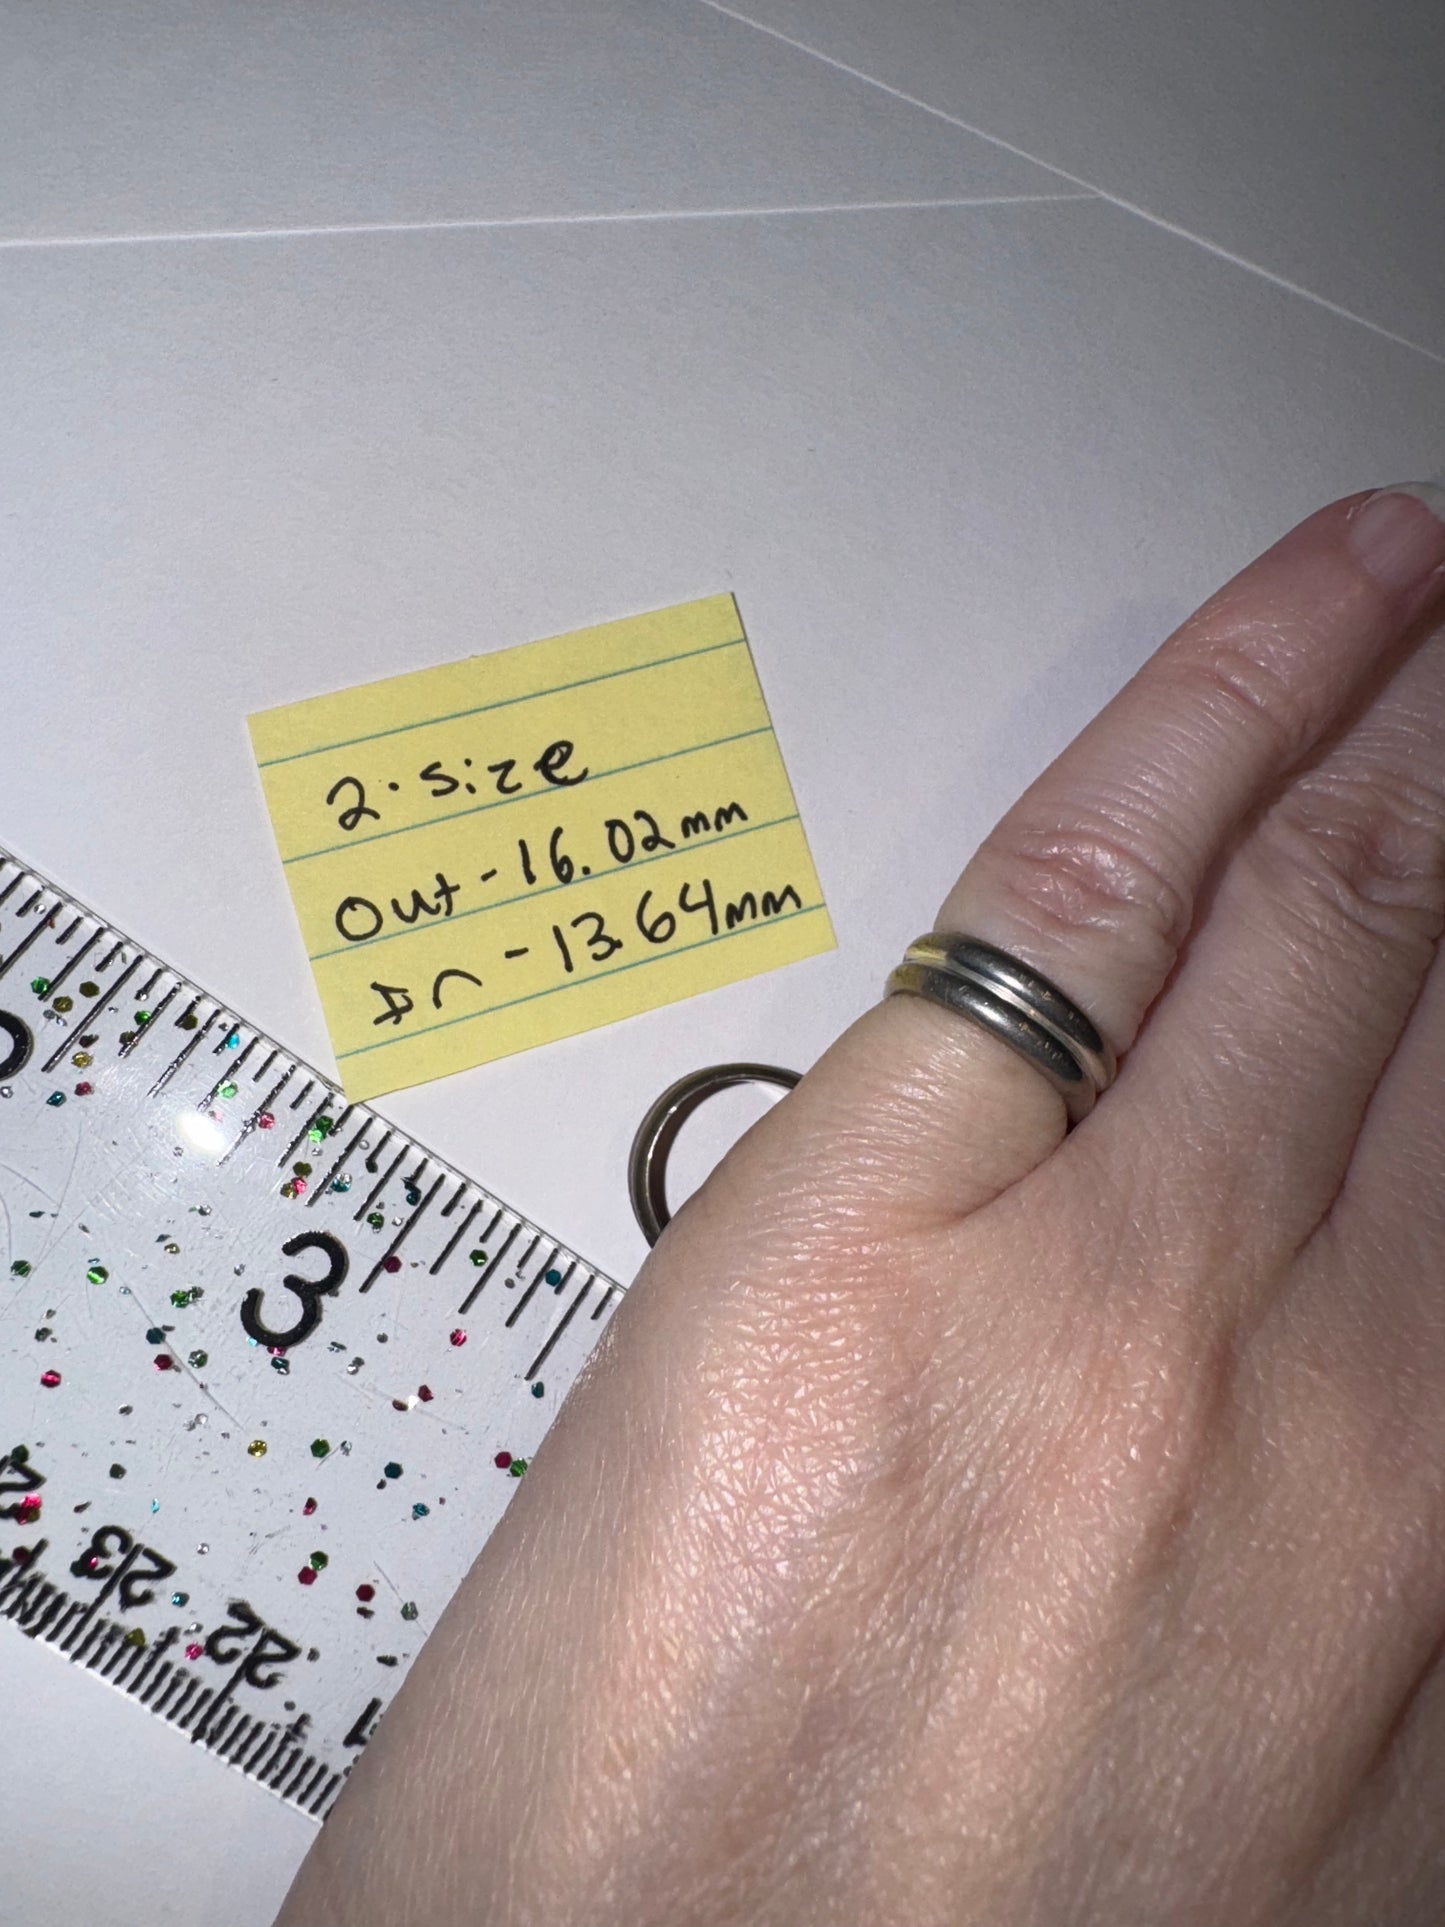 2. size
Out - 16.02mm
In - 13.64mm
3
23
22